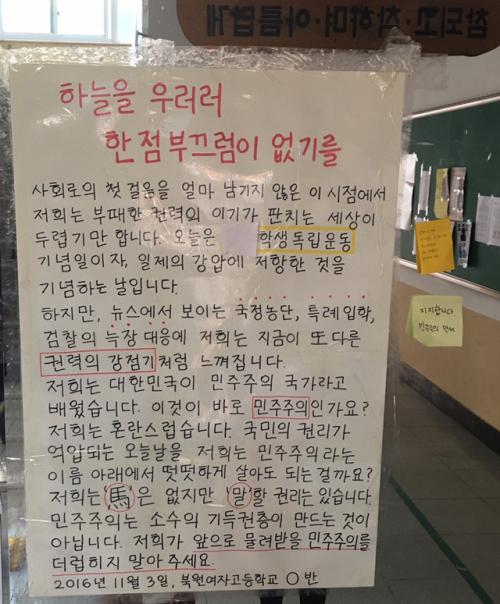 참되고·착하며·아름답게
하늘을 우러러
한 점 부끄럼이 없기를
사회로의 첫 걸음을 얼마 남기지 않은 이 시점에서
저희는 부패한 권력의 이기가 판치는 세상이
두렵기만 합니다. 오늘은 학생독립운동
기념일이자, 일제의 강압에 저항한 것을
기념하는 날입니다.
하지만, 뉴스에서 보이는 국정농단, 특례입학,
검찰의 늑장 대응에 저희는 지금이 또 다른
권력의 강점기처럼 느껴집니다.
저희는 대한민국이 민주주의 국가라고
배웠습니다. 이것이 바로 민주주의인가요?
저희는 혼란스럽습니다. 국민의 권리가
억압되는 오늘날을 저희는 민주주의라는
이름 아래에서 떳떳하게 살아도 되는 걸까요?
저희는 '馬'은 없지만 '말'할 권리는 있습니다
민주주의는 소수의 기득권층이 만드는 것이
아닙니다. 저희가 앞으로 물려받을 민주주의를
더럽히지 말아 주세요.
2016년 11월 3일, 북원여자고등학교 ○반
지지합니다
민주주의